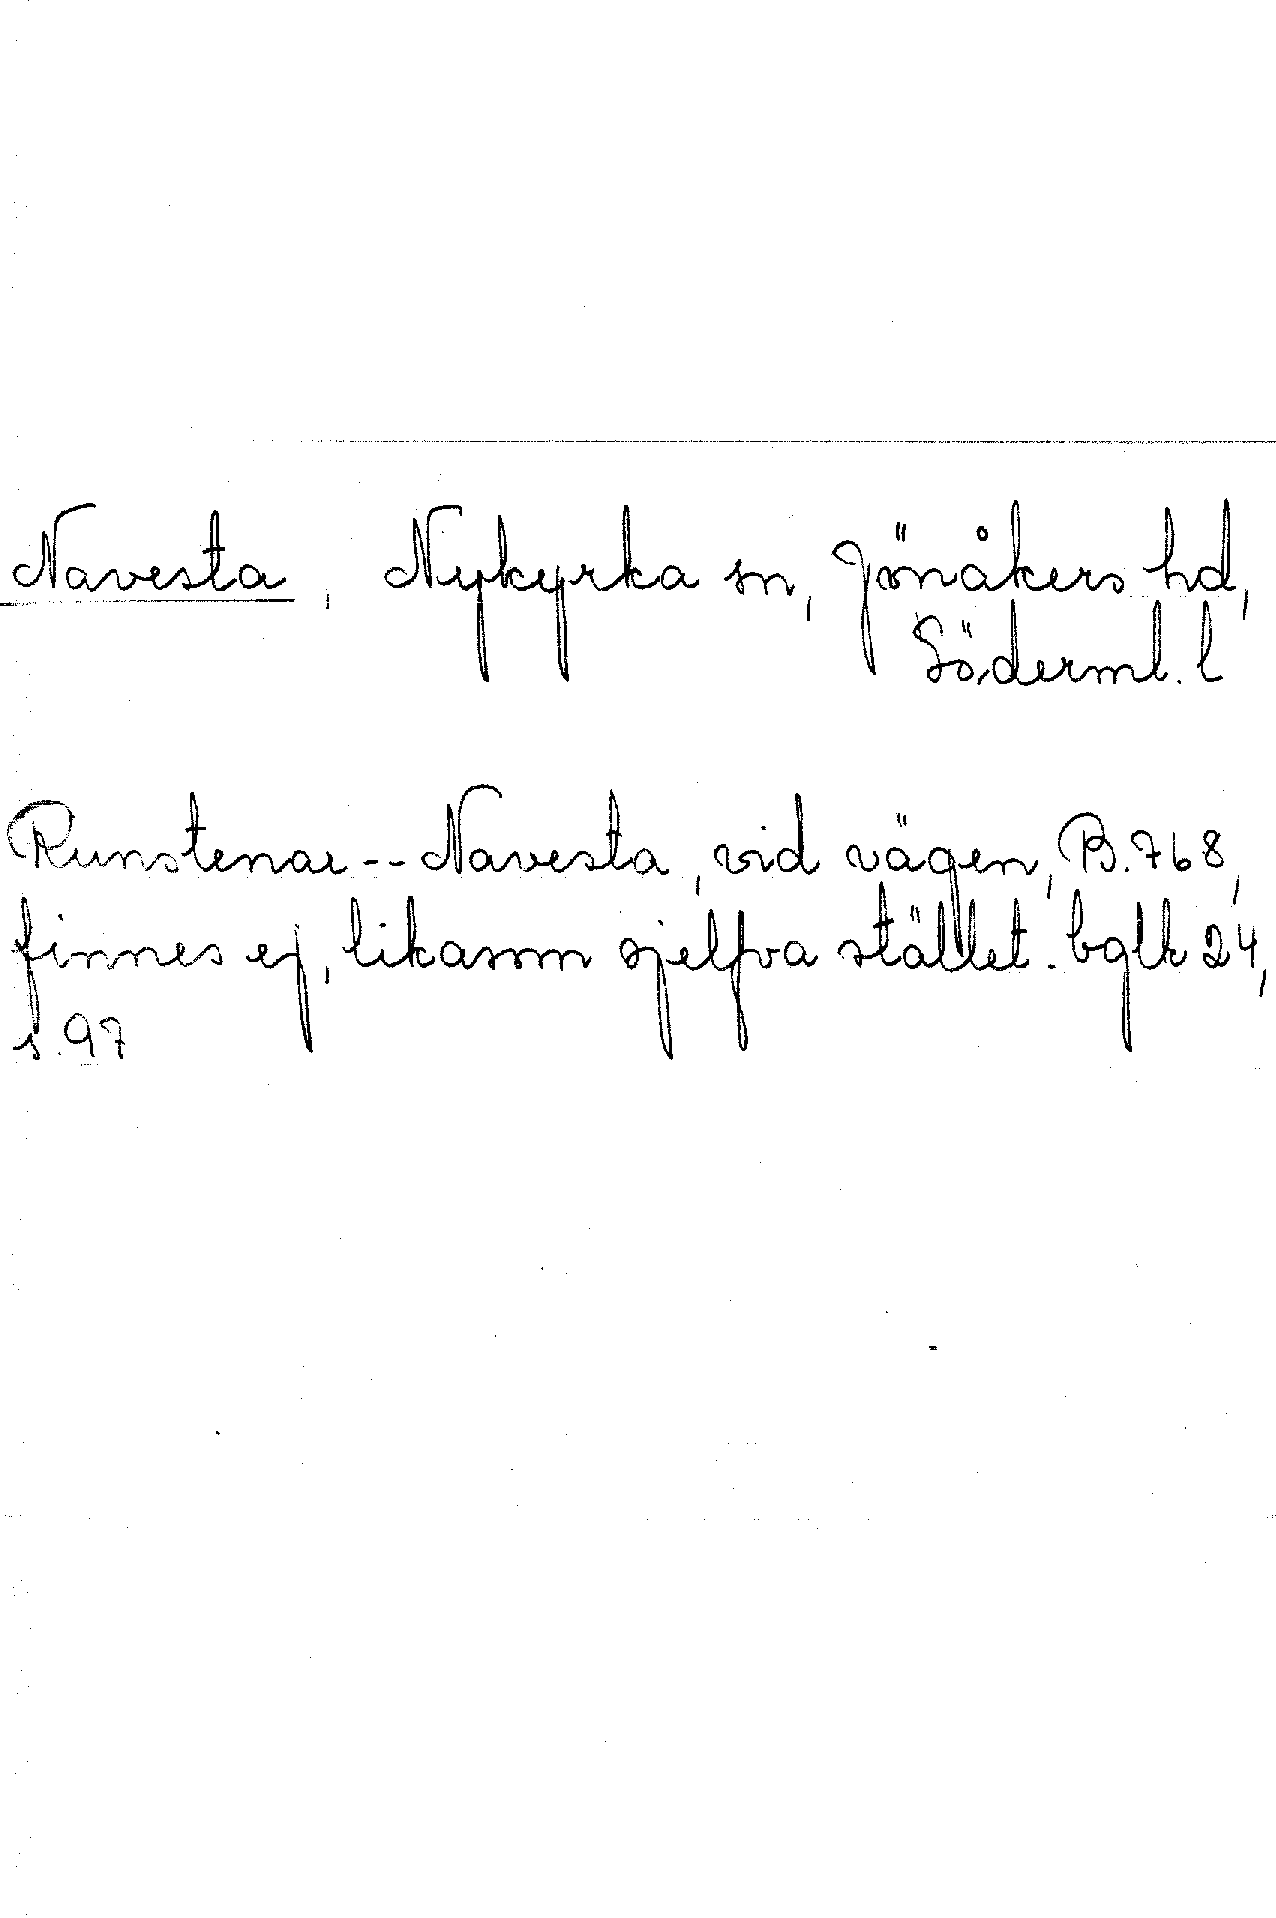 Navesta, Nykyrka sn, Jönåkers hd,
Söderml. l
Runstenar -- Navesta, vid vägen, B. 768,
finnes ej, likasom sjelfva stället. bglk 24,
s. 97